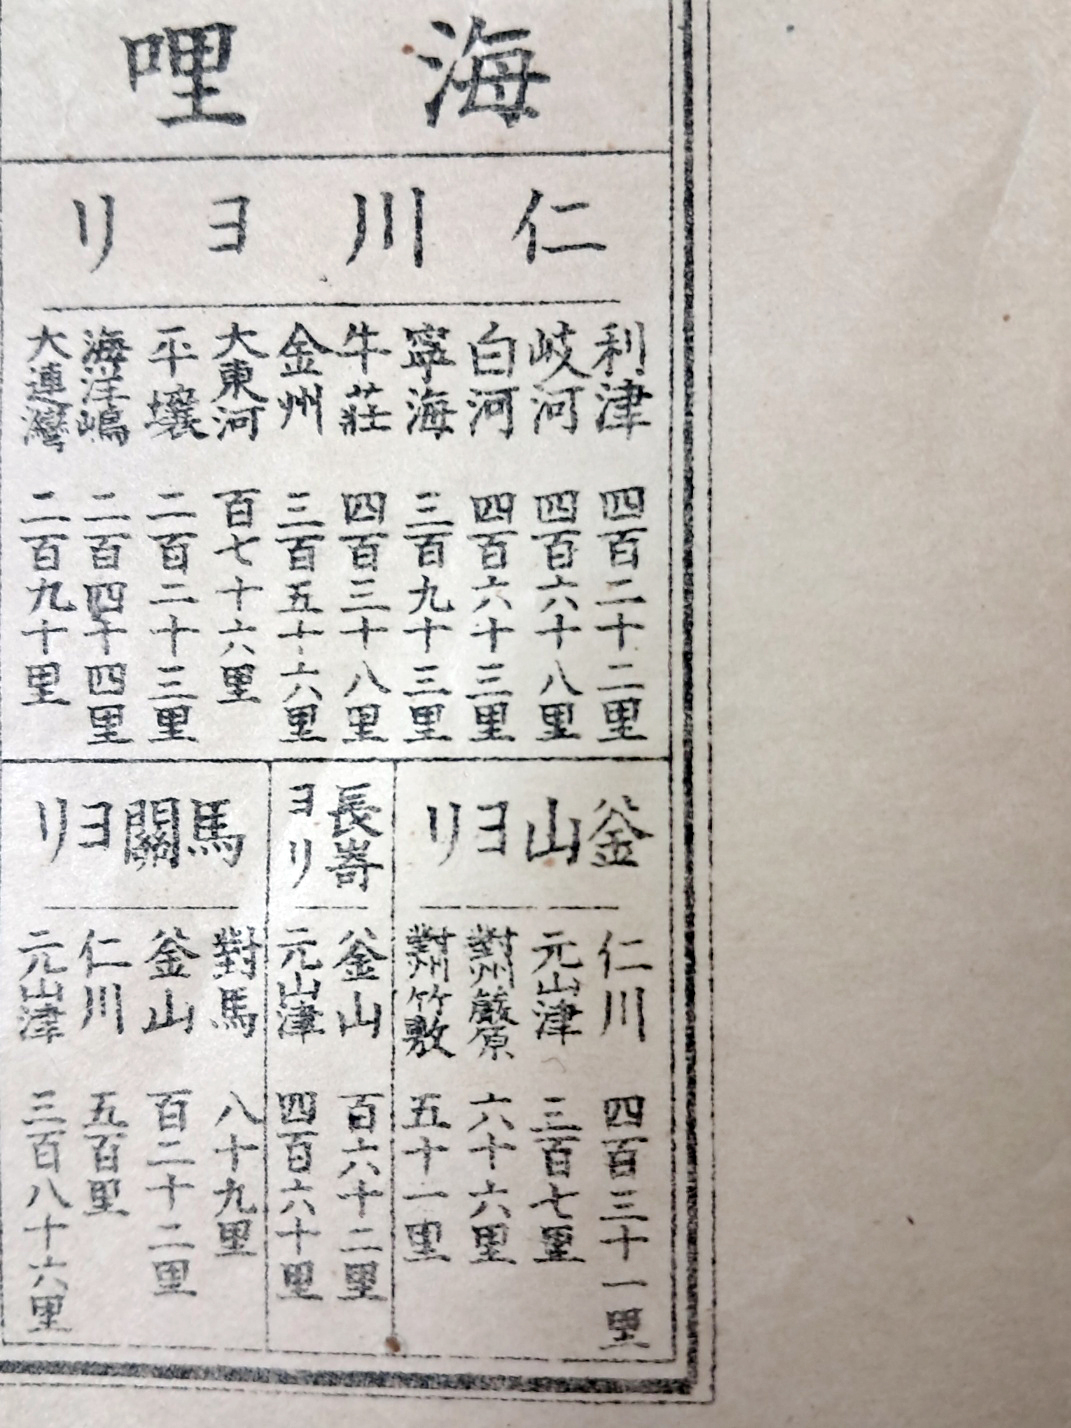 海哩
仁川ヨリ
利津 四百二十二里
岐河 四百六十八里
白河 四百六十三里
寧海 三百九十三里
牛莊 四百三十八里
金州 三百五十六里
大東河 百七十六里
平壤 二百二十三里
海洋嶋 二百四十四里
大連灣 二百九十里
釜山ヨリ
仁川 四百三十一里
元山津 三百七里
對州嚴原 六十六里
對州竹敷 五十一里
長崎ヨリ
釜山 百六十二里
元山津 四百六十里
馬關ヨリ
對馬 八十九里
釜山 百二十二里
仁川 五百里
元山津 三百八十六里